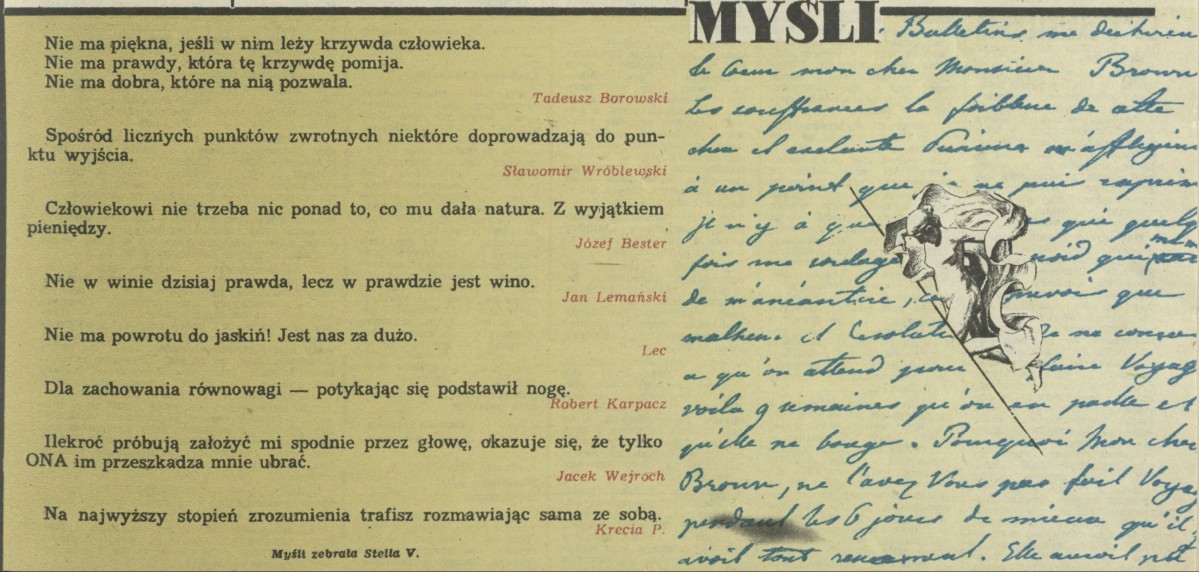 MYŚLI
Nie ma piękna, jeśli w nim leży krzywda człowieka.
Nie ma prawdy, która tę krzywdę pomija.
Nie ma dobra, które na nią pozwala.
Tadeusz Borowski
Spośród licznych punktów zwrotnych niektóre doprowadzają do pun-
ktu wyjścia.
Sławomir Wróblewski
Człowiekowi nie trzeba nic ponad to, co mu dała natura. Z wyjątkiem
pieniędzy.
Józef Bester
Nie w winie dzisiaj prawda, lecz w prawdzie jest wino.
Jan Lemański
Nie ma powrotu do jaskiń! Jest nas za dużo.
Lec
Dla zachowania równowagi — potykając się podstawił nogę.
Robert Karpacz
Ilekroć próbują założyć mi spodnie przez głowę, okazuje się, że tylko
ONA im przeszkadza mnie ubrać.
Jacek Wejroch
Na najwyższy stopień zrozumienia trafisz rozmawiając sama ze sobą.
Krecia P.
Myśli zebrała Stella V.
Bulletins me
mon cher Monsieur Brown
Les souffrances la de
cher et
à un point que je ne puis
je n'y a
fois me
de que
malheur et ne
a qu'on attend pour faire Voyag
voila 9 semaines qu'on en parle et
qu'elle ne bouge. Pourquoi Mon cher
Brown, ne l'avez Vous pas fait Voya
pendant les 6 jours de mieux qu'il
avoit tout . Elle auroit